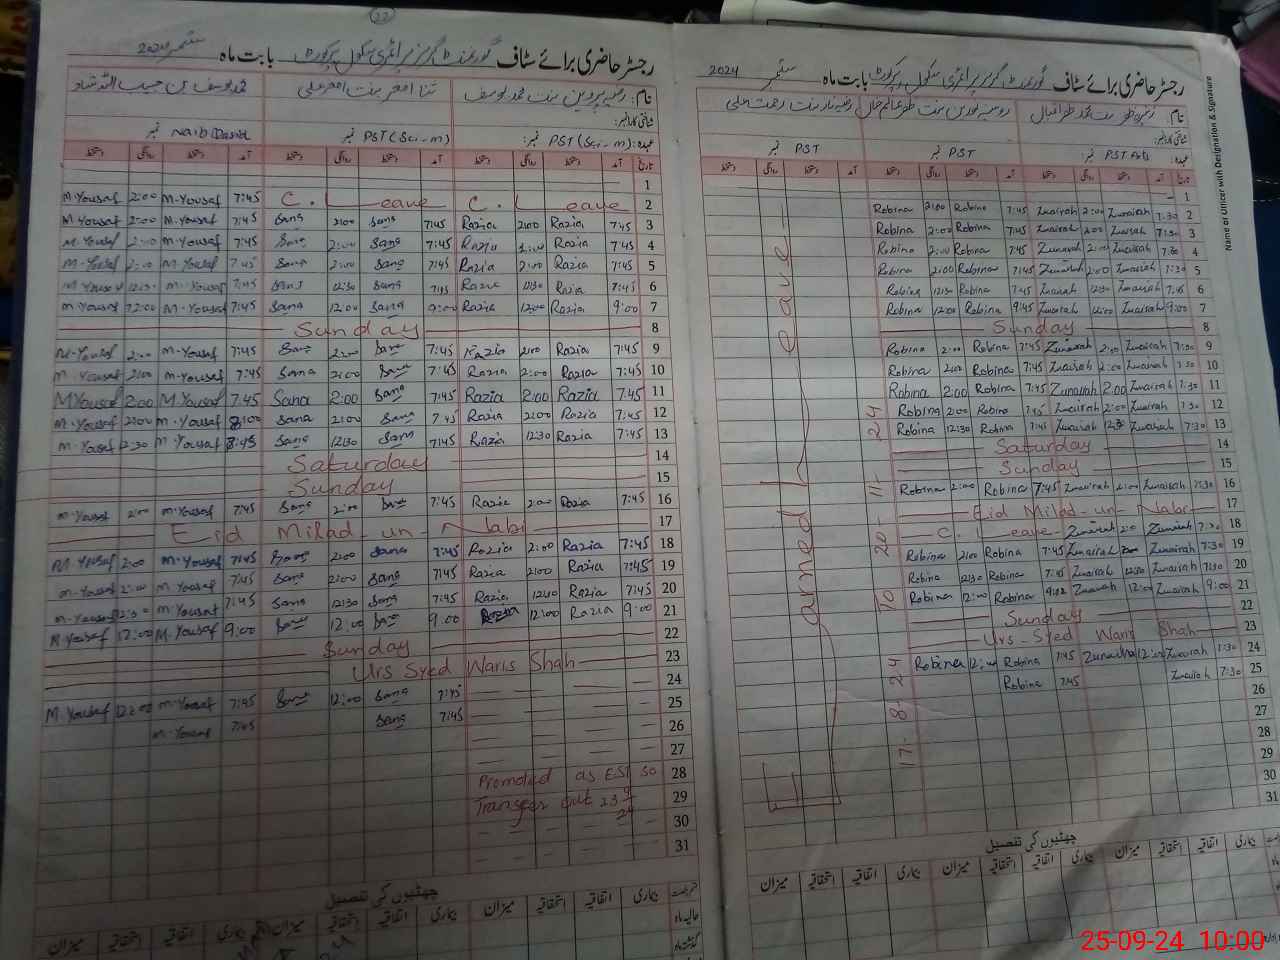 22
رجسٹر حاضری برائے سٹاف گورنمنٹ گرلز پرائمری سکول بابت ماہ ستمبر 2024
نام: رضیہ پروین بنت محمد یوسف
محمد یوسف بن حبیب اللہ شاد
شناختی کارڈ نمبر:
عہدہ: PST (Sci-m) نمبر PST (Sci-m) نمبر Naib Qasid نمبر
تاریخ آمد دستخط روانگی دستخط آمد دستخط روانگی دستخط آمد دستخط روانگی دستخط
1
M.Yousaf 2:00 M.Yousaf 7:45 C. Leave C. Leave 2
M.Yousaf 2:00 M.Yousaf 7:45 Sana 2:00 Sana 7:45 Razia 2:00 Razia 7:45 3
M.Yousaf 2:00 M.Yousaf 7:45 Sana 2:00 Sana 7:45 Razia 2:00 Razia 7:45 4
M.Yousaf 2:00 M.Yousaf 7:45 Sana 2:00 Sana 7:45 Razia 2:00 Razia 7:45 5
M.Yousaf 12:30 M.Yousaf 7:45 Sana 12:30 Sana 7:45 Razia 12:30 Razia 7:45 6
M.Yousaf 12:00 M.Yousaf 7:45 Sana 12:00 Sana 9:00 Razia 12:00 Razia 9:00 7
Sunday 8
M.Yousaf 2:00 M.Yousaf 7:45 Sana 2:00 Sana 7:45 Razia 2:00 Razia 7:45 9
M.Yousaf 2:00 M.Yousaf 7:45 Sana 2:00 Sana 7:45 Razia 2:00 Razia 7:45 10
M Yousaf 2:00 M Yousaf 7:45 Sana 2:00 Sana 7:45 Razia 2:00 Razia 7:45 11
M.Yousaf 2:00 M.Yousaf 8:00 Sana 2:00 Sana 7:45 Razia 2:00 Razia 7:45 12
M.Yousaf 12:30 M.Yousaf 8:45 Sana 12:30 Sana 7:45 Razia 12:30 Razia 7:45 13
Saturday 14
Sunday 15
M.Yousaf 2:00 M.Yousaf 7:45 Sana 2:00 Sana 7:45 Razia 2:00 Razia 7:45 16
Eid Milad-un-Nabi 17
M.Yousaf 2:00 M.Yousaf 7:45 Sana 2:00 Sana 7:45 Razia 2:00 Razia 7:45 18
M.Yousaf 2:00 M Yousaf 7:45 Sana 2:00 Sana 7:45 Razia 2:00 Razia 7:45 19
M.Yousaf 12:30 M Yousaf 7:45 Sana 12:30 Sana 7:45 Razia 12:30 Razia 7:45 20
M.Yousaf 12:00 M.Yousaf 9:00 Sana 12:00 Sana 9:00 Razia 12:00 Razia 9:00 21
Sunday 22
Urs Syed Waris Shah 23
M.Yousaf 12:00 M.Yousaf 7:45 Sana 12:00 Sana 7:45 24
M.Yousaf 7:45 Sana 7:45 25
26
27
Promoted as EST so 28
Transfer out 23 9 24 29
30
31
چھٹیوں کی تفصیل
رخصت بیماری اتفاقیہ استحقاقیہ میزان بیماری اتفاقیہ استحقاقیہ میزان بیماری اتفاقیہ استحقاقیہ میزان
حالیہ ماہ
گذشتہ ماہ
رجسٹر حاضری برائے سٹاف گورنمنٹ گرلز پرائمری سکول بابت ماہ ستمبر 2024
نام:
عہدہ: PST نمبر PST نمبر PST
تاریخ آمد دستخط روانگی دستخط آمد دستخط روانگی دستخط آمد دستخط روانگی دستخط
Name of Officer with Designation & Signature
1
Robina 2:00 Robina 7:45 Zunairah 2:00 Zunairah 7:30 2
Robina 2:00 Robina 7:45 Zunairah 2:00 Zunairah 7:30 3
Robina 2:00 Robina 7:45 Zunairah 2:00 Zunairah 7:30 4
Robina 2:00 Robina 7:45 Zunairah 2:00 Zunairah 7:30 5
Robina 12:30 Robina 7:45 Zunairah 12:30 Zunairah 7:45 6
Robina 12:00 Robina 9:45 Zunairah 12:00 Zunairah 9:00 7
Sunday 8
Robina 2:00 Robina 7:45 Zunairah 2:00 Zunairah 7:30 9
Robina 2:00 Robina 7:45 Zunairah 2:00 Zunairah 7:30 10
Robina 2:00 Robina 7:45 Zunairah 2:00 Zunairah 7:30 11
Robina 2:00 Robina 7:45 Zunairah 2:00 Zunairah 7:30 12
Robina 12:30 Robina 7:45 Zunairah 12:30 Zunairah 7:30 13
Saturday 14
Sunday 15
Robina 2:00 Robina 7:45 Zunairah 2:00 Zunairah 7:30 16
Eid Milad-un-Nabi 17
C. Leave Zunairah 2:00 Zunairah 7:30 18
Robina 2:00 Robina 7:45 Zunairah 2:00 Zunairah 7:30 19
Robina 12:30 Robina 7:45 Zunairah 12:30 Zunairah 7:30 20
Robina 12:00 Robina 9:02 Zunairah 12:00 Zunairah 9:00 21
Sunday 22
Urs Syed Waris Shah 23
Robina 12:00 Robina 7:45 Zunairah 12:00 Zunairah 7:30 24
Robina 7:45 Zunairah 7:30 25
26
27
28
29
30
31
Earned Leave
17-8-24 To 20-11-24
چھٹیوں کی تفصیل
بیماری اتفاقیہ استحقاقیہ میزان بیماری اتفاقیہ استحقاقیہ میزان
25-09-24 10:00